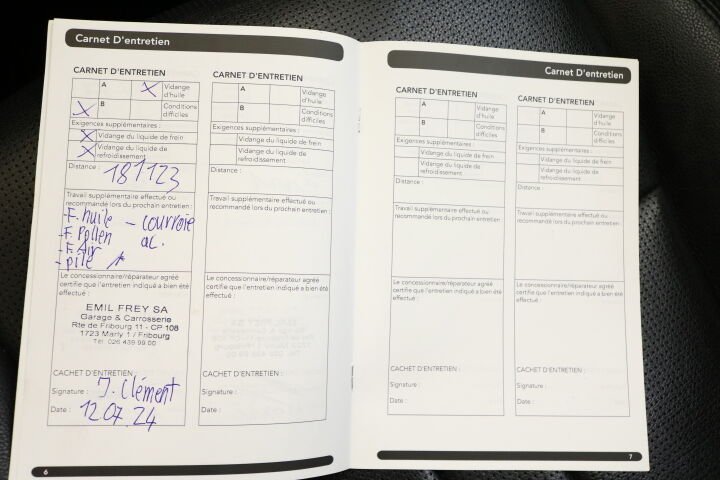 Carnet D'entretien
CARNET D'ENTRETIEN
A X Vidange d'huile
X B Conditions difficiles
Exigences supplémentaires :
X Vidange du liquide de frein
X Vidange du liquide de refroidissement
Distance : 181123
Travail supplémentaire effectué ou
recommandé lors du prochain entretien :
-F. huile - courroie
-F. Pollen ac.
-F. Air
-pile
Le concessionnaire/réparateur agréé
certifie que l'entretien indiqué a bien été
effectué :
EMIL FREY SA
Garage & Carrosserie
Rte de Fribourg 11 - CP 108
1723 Marly 1 / Fribourg
Tél. 026 439 99 00
CACHET D'ENTRETIEN :
Signature : J. Clément
Date : 12 07. 24
CARNET D'ENTRETIEN
A Vidange d'huile
B Conditions difficiles
Exigences supplémentaires :
Vidange du liquide de frein
Vidange du liquide de
refroidissement
Distance :
Travail supplémentaire effectué ou
recommandé lors du prochain entretien :
Le concessionnaire/réparateur agréé
certifie que l'entretien indiqué a bien été
effectué :
CACHET D'ENTRETIEN :
Signature :
Date :
6
Carnet D'entretien
CARNET D'ENTRETIEN
A Vidange d'huile
B Conditions difficiles
Exigences supplémentaires :
Vidange du liquide de frein
Vidange du liquide de
refroidissement
Distance :
Travail supplémentaire effectué ou
recommandé lors du prochain entretien :
Le concessionnaire/réparateur agréé
certifie que l'entretien indiqué a bien été
effectué :
CACHET D'ENTRETIEN :
Signature :
Date :
CARNET D'ENTRETIEN
A Vidange d'huile
B Conditions difficiles
Exigences supplémentaires :
Vidange du liquide de frein
Vidange du liquide de
refroidissement
Distance :
Travail supplémentaire effectué ou
recommandé lors du prochain entretien :
Le concessionnaire/réparateur agréé
certifie que l'entretien indiqué a bien été
effectué :
CACHET D'ENTRETIEN :
Signature :
Date :
7